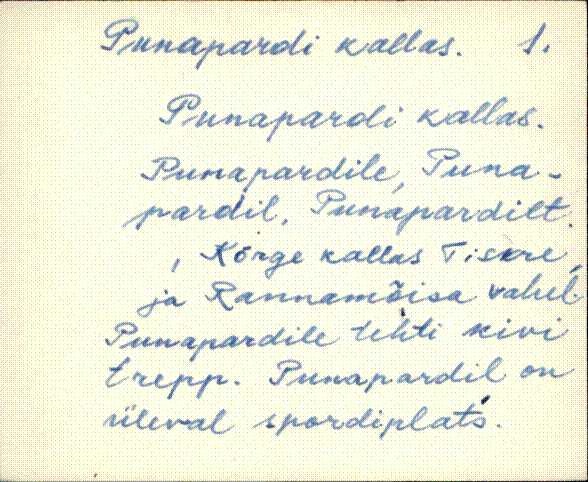 Punapardi kallas. 1.
Punapardi kallas.
Punapardile, Puna-
pardil, Punapardilt.
, Kõrge kallas Tiskre
ja Rannamõisa vahel.
Punapardile tehti kivi
trepp. Punapardil on
üleval spordiplats.